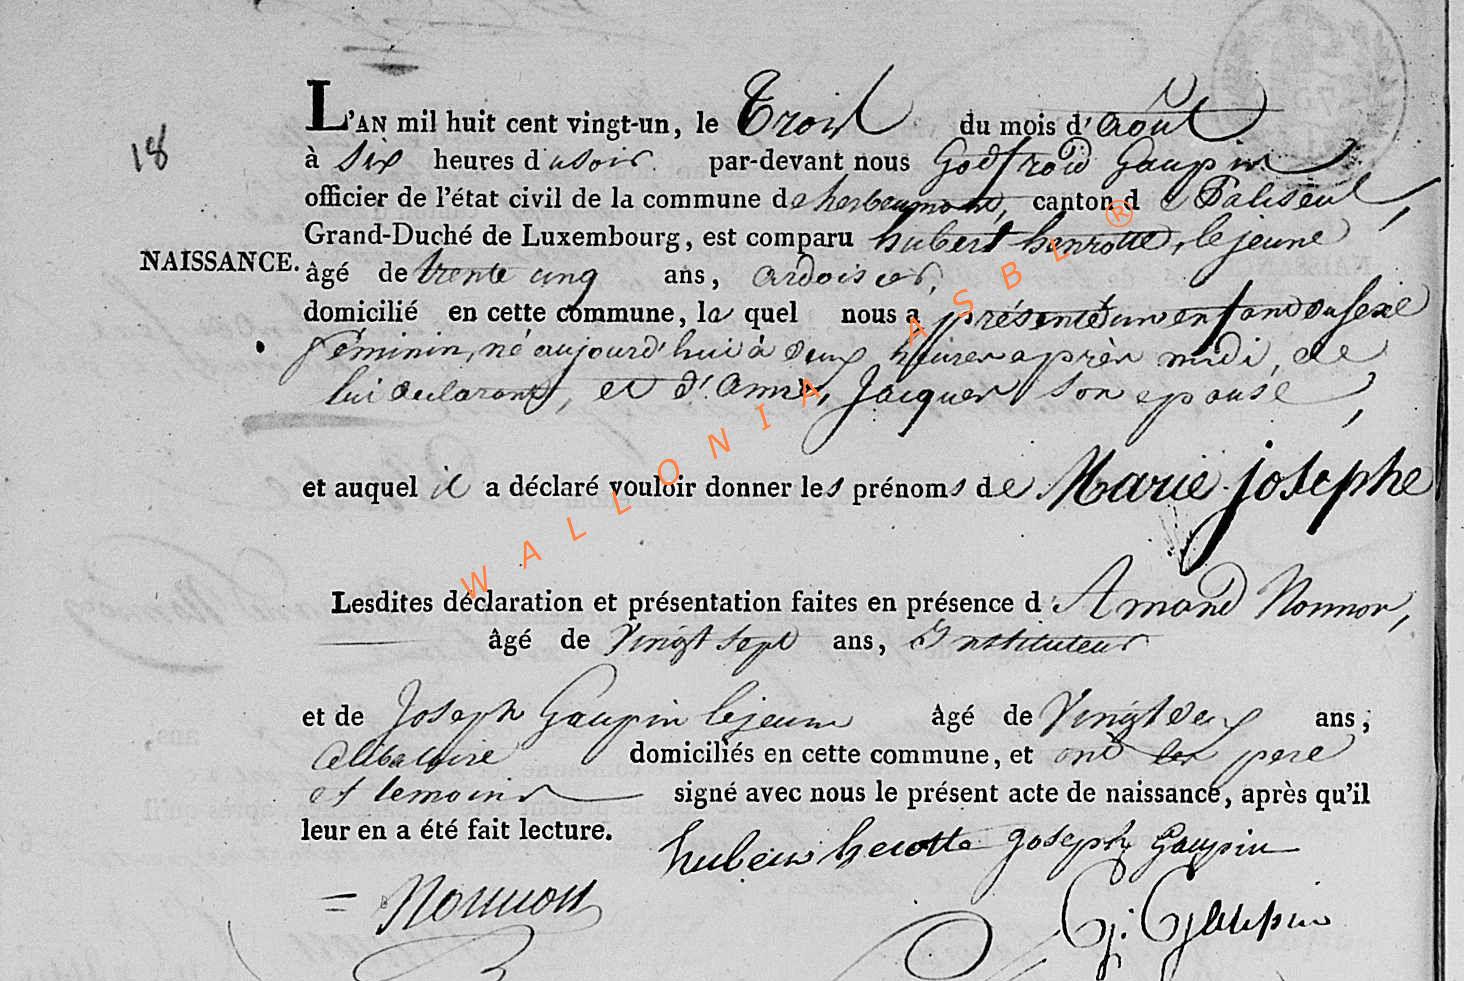 L'AN mil huit cent vingt-un, le Trois du mois d'Août
18
à six heures du soir par-devant nous Godfroid Gaupin
officier de l'état civil de la commune de herbeumont, canton de Paliseul,
Grand-Duché de Luxembourg, est comparu hubert henrotte, lejeune
NAISSANCE.
âgé de trente cinq ans, ardoisier,
domicilié en cette commune, le quel nous a présenté un enfant du sexe
féminin, né aujourd'hui à deux heures après midi, de
lui declarant, et d'Anne, Jacques son epouse,
et auquel il a déclaré vouloir donner les prénoms de Marie josephe
Lesdites déclaration et présentation faites en présence d'Amand Nonnon,
âgé de Vingt sept ans, Instituteur
et de Joseph Gaupin lejeune âgé de Vingt deux ans,
celibataire domiciliés en cette commune, et ont les pere
et temoins signé avec nous le présent acte de naissance, après qu'il
leur en a été fait lecture.
hubert herotte Joseph Gaupin
Nonnon
G: Gaupin
WALLONIA ASBL ®